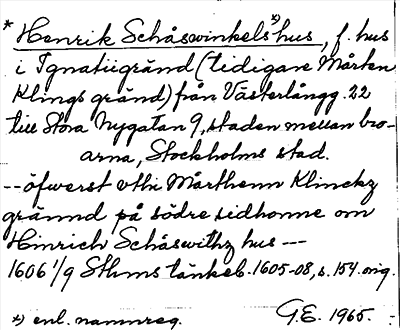 * Henrik Schåswinkels *) hus, f. hus
i Ignatiigränd (tidigare Mårten
Klings gränd) från Västerlångg. 22
till Stora Nygatan 9, staden mellan bro-
arna, Stockholms stad.
-- öfwerst vthi Mårthenn Klinckz
grännd på södre sidhonne om
Hinrich Schåswithz hus ---
1606 1/9 Sthms tänkeb. 1605-08, s. 154. orig.
*) enl. namnreg. G.E. 1965.